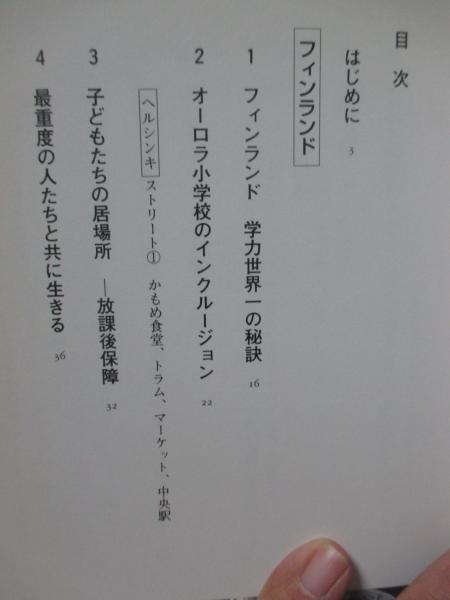 目次
はじめに 3
フィンランド
1 フィンランド 学力世界一の秘訣 16
2 オーロラ小学校のインクルージョン 22
ヘルシンキ ストリート① かもめ食堂、トラム、マーケット、中央駅
3 子どもたちの居場所 ―放課後保障 32
4 最重度の人たちと共に生きる 36